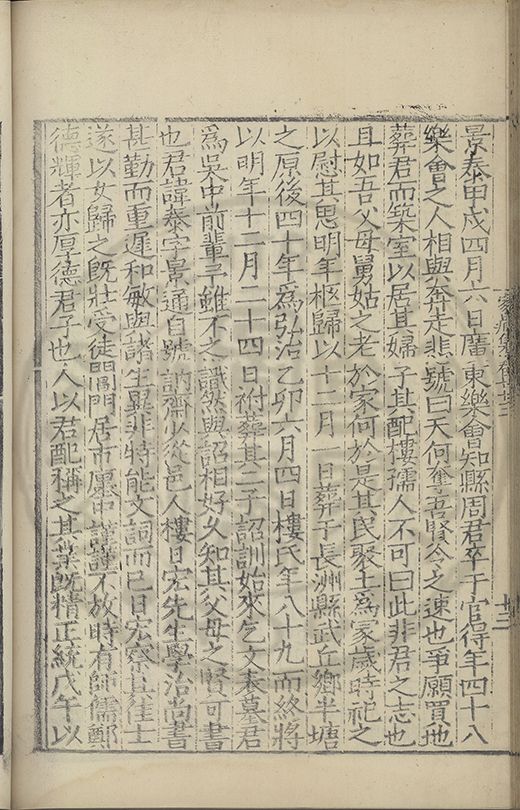 景泰甲戌四月六日廣東樂會知縣周君卒于官得年四十八
樂會之人相與奔走悲號曰天何奪吾賢令之速也爭願買地
葬君而築室以居其婦子其配樓孺人不可曰此非君之志也
且如吾父母舅姑之老於家何於是其民聚土為冢歲時祀之
以慰其思明年柩歸以十二月一日葬于長洲縣武丘鄉半塘
之原後四十年為弘治乙卯六月四日樓氏年八十九而終將
以明年十二月二十四日祔葬其二子詔訓始來乞文表墓君
為吳中前輩予雖不之識然與詔相好久知其父母之賢可書
也君諱泰字景通自號訥齋少從邑人樓日宏先生學治尚書
甚勤而重遲和敏與諸生異非特能文詞而已日宏察其佳士
遂以女歸之既壯受徒閶門居市廛中謹謹不放時有師儒鄭
德輝者亦厚德君子也人以君配稱之其業既精正統戊午以
家藏集卷廿三
廿三